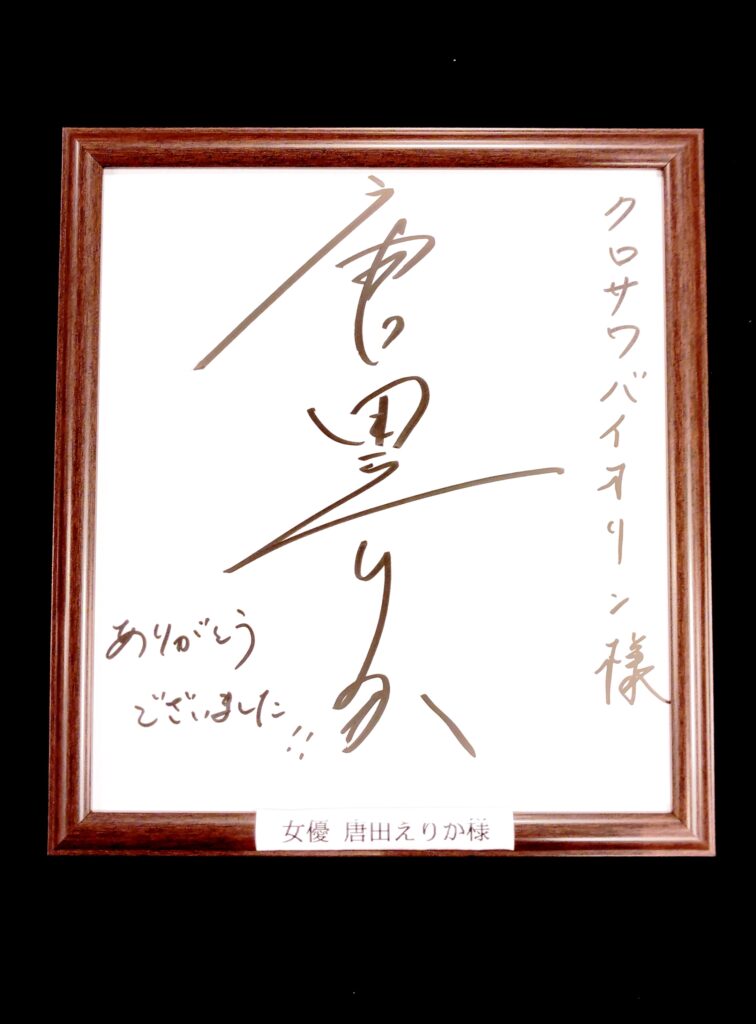 クロサワバイオリン様
唐田えりか
ありがとう
ございました!!
女優 唐田えりか様